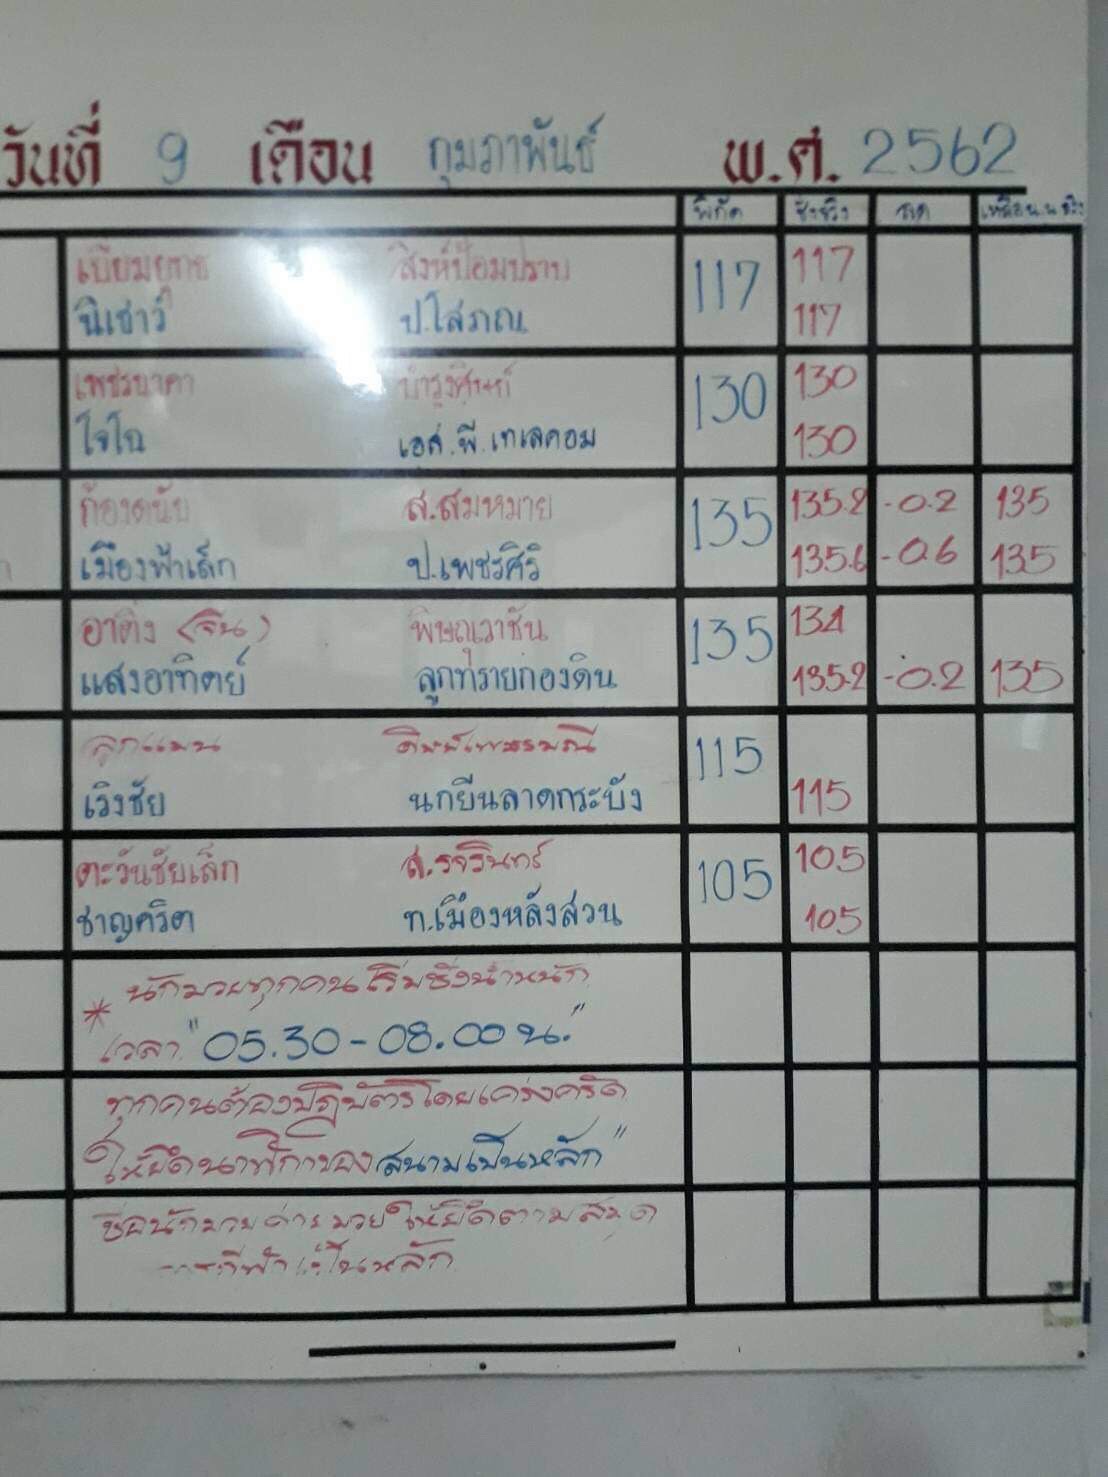 วันที่ 9 เดือน กุมภาพันธ์ พ.ศ. 2562
พิกัด ชั่งจริง ลด เหลือ น.น จริง
เปี่ยมยุทธ สิงห์ป้อมปราบ 117 117
นิเชาว์ ป.โสภณ 117
เพชรนาคา บำรุงศิษย์ 130 130
โจโฉ เอส.พี.เทเลคอม 130
ก้องดนัย ส.สมหมาย 135 135.2 -0.2 135
เมืองฟ้าเล็ก ป.เพชรศิริ 135.6 -0.6 135
อาติง (จีน) พิษณุเวาชัน 135 134
แสงอาทิตย์ ลูกทรายกองดิน 135.2 -0.2 135
ลูกแมน ศิษย์เพชรมณี 115
เริงชัย นกยีนลาดกระบัง 115
ตะวันชัยเล็ก ส.รจรินทร์ 105 105
ชาญคริต ท.เมืองหลังสวน 105
* นักมวยทุกคนเริ่มชั่งน้ำหนัก
เวลา "05.30-08.00 น."
ทุกคนต้องปฏิบัติโดยเคร่งครัด
ให้ยึดนาฬิกาของสนามเป็นหลัก"
ชื่อนักมวยค่ายมวยให้ยึดตามสมุด
กีฬาเป็นหลัก